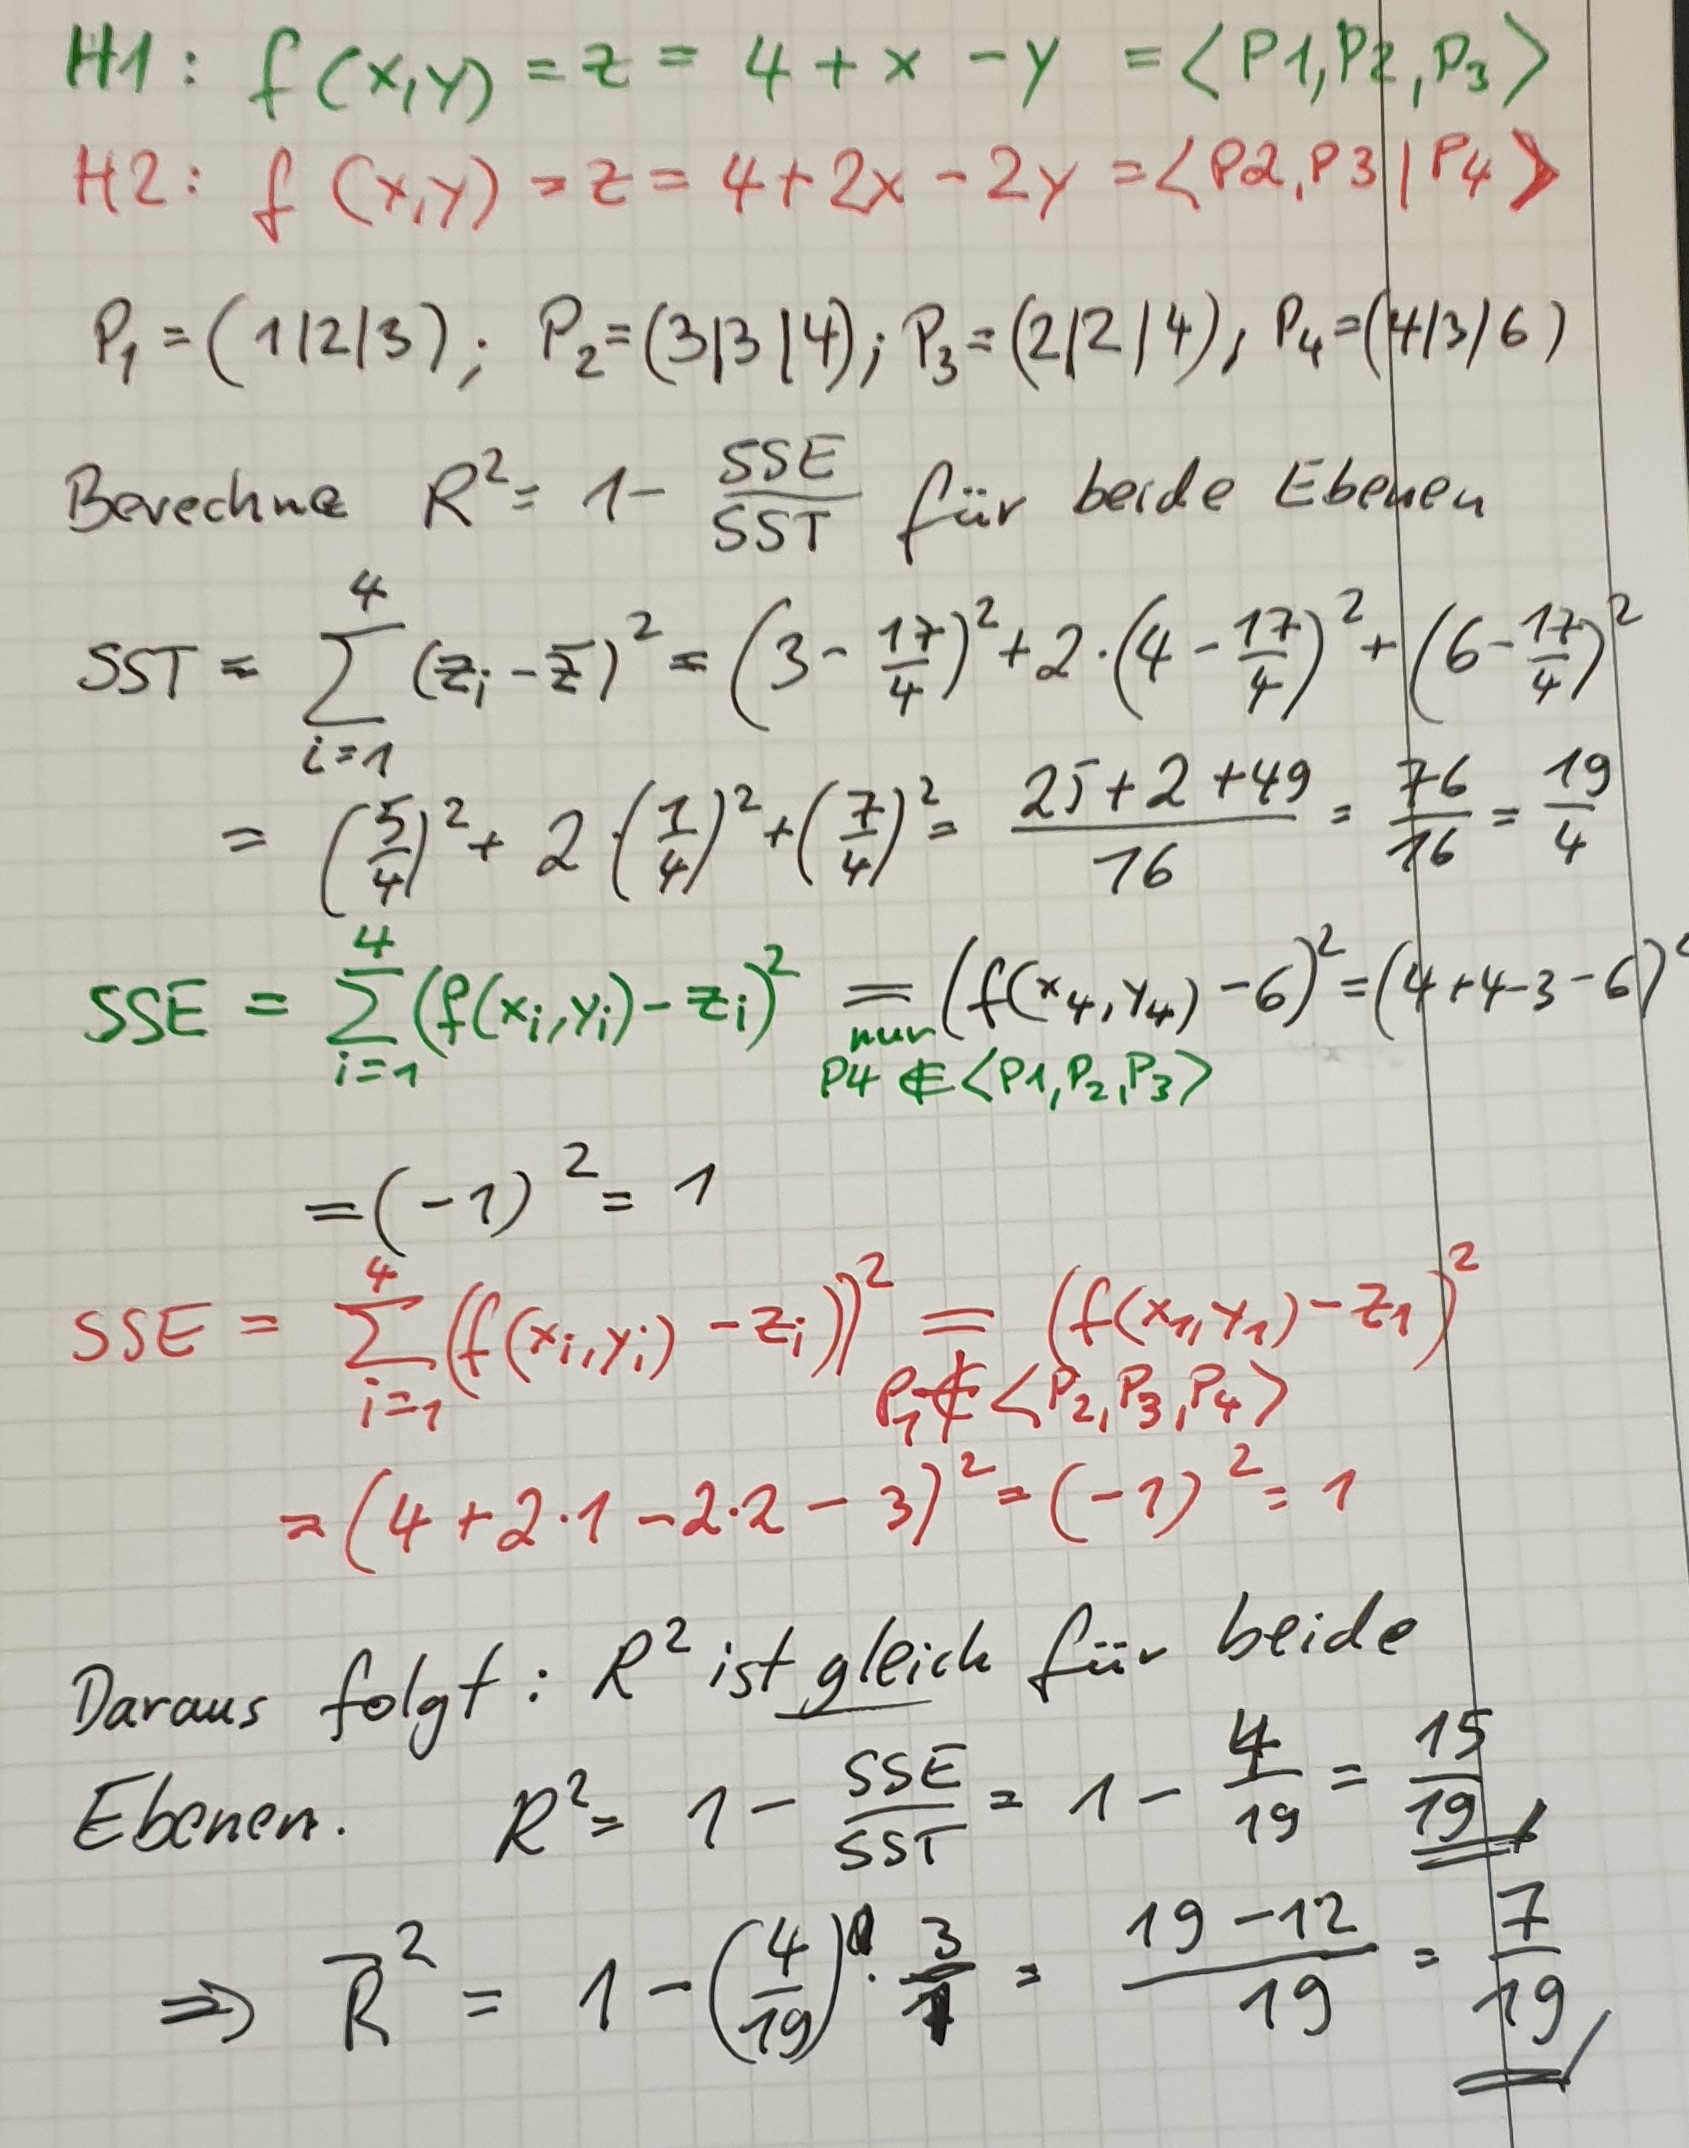 H1: f(x,y) = z = 4 + x - y = ⟨P1,P2,P3⟩
H2: f(x,y) = z = 4+2x-2y = ⟨P2,P3|P4⟩
P₁ = (1|2|3); P₂=(3|3|4); P₃=(2|2|4), P₄=(4|3|6)
Berechne R² = 1 - SSE/SST für beide Ebenen
SST = ∑_{i=1}^{4} (z_i - z̄)² = (3 - 17/4)² + 2·(4 - 17/4)² + (6 - 17/4)²
= (5/4)² + 2·(1/4)² + (7/4)² = (25+2+49)/16 = 76/16 = 19/4
SSE = ∑_{i=1}^{4} (f(x_i,y_i) - z_i)² = (f(x₄,y₄) - 6)² = (4+4-3-6)²
nur
P4 ∉ ⟨P1,P₂,P₃⟩
= (-1)² = 1
SSE = ∑_{i=1}^{4} (f(x_i,y_i) - z_i))² = (f(x₁,y₁) - z₁)²
P₁ ∉ ⟨P₂,P₃,P₄⟩
= (4 + 2·1 - 2·2 - 3)² = (-1)² = 1
Daraus folgt: R² ist gleich für beide
Ebenen. R² = 1 - SSE/SST = 1 - 4/19 = 15/19
⇒ R̄² = 1 - (4/19) · 3/1 = (19-12)/19 = 7/19